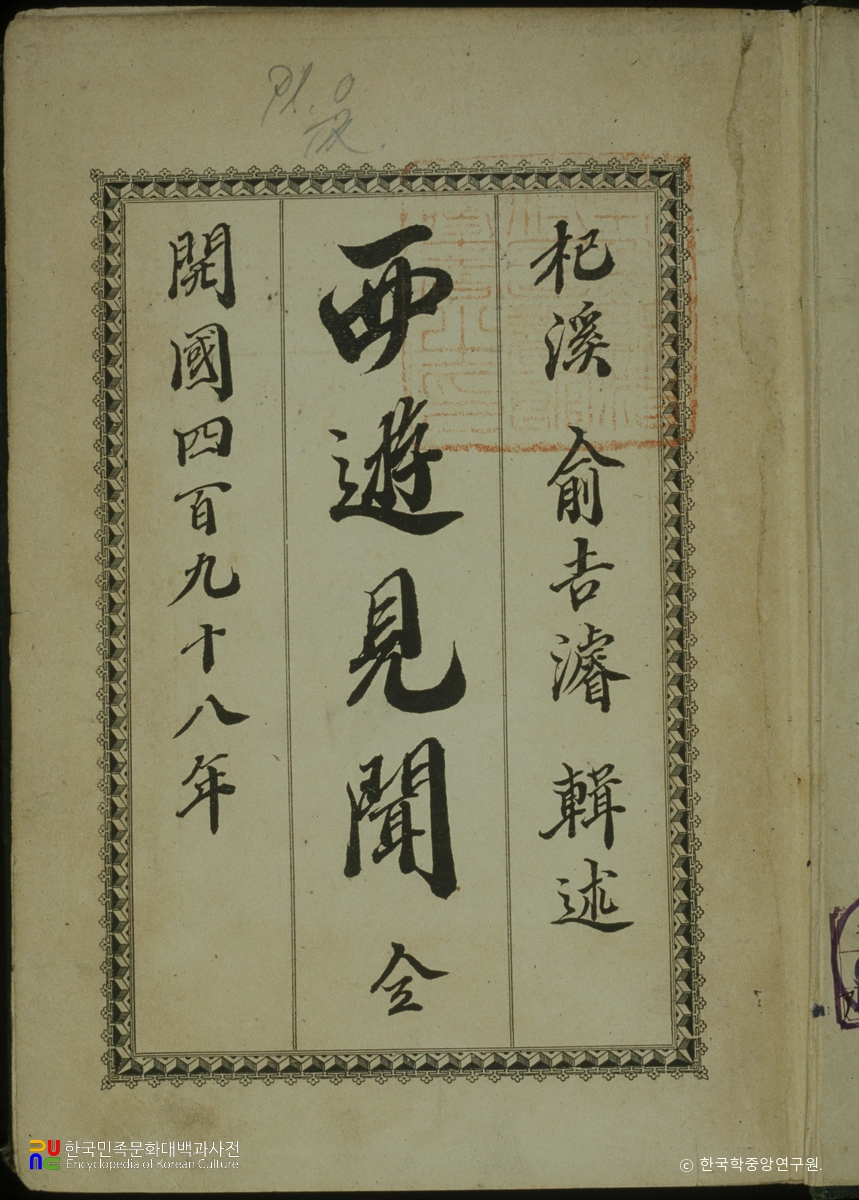 杞溪 兪吉濬 輯述
西遊見聞 全
開國四百九十八年
한국민족문화대백과사전
Encyclopedia of Korean Culture
ⓒ 한국학중앙연구원.